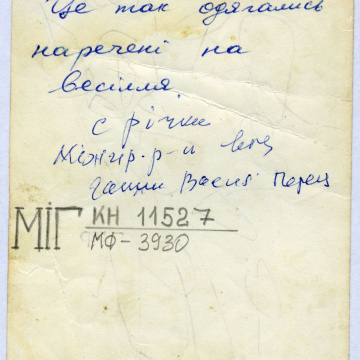 Це так одягались
наречені на
весілля
с річки
Міжгір. р-н
Ганни Васил
МІГ КН 11527
МФ-3930